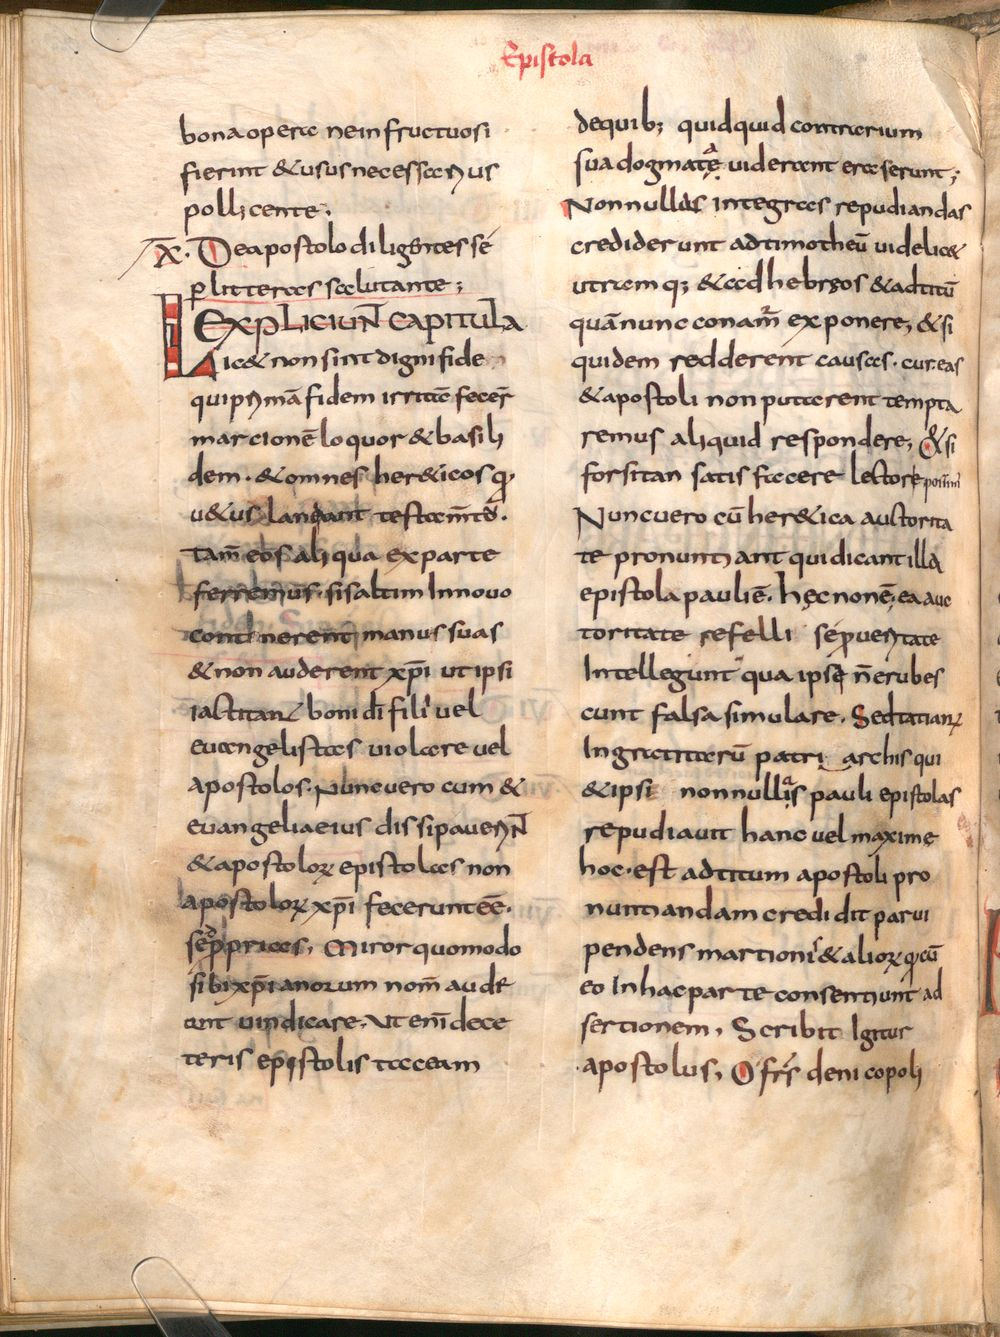 Epistola
bona operæ ne infructuosi
fierint & usus necessarius
pollicente.
X. De apostolo diligentes sē
p litteras salutante;
EXPLICIUNT CAPITULA
Lic& non sint digni fide
qui primā fidem irritā fecer̄
marcionē loquor & basili
dem. & omnes her&icos q̄
u&us landant testam̄tū.
tam̄ eos aliqua ex parte
ferremus. si saltim In novo
continerent manus suas
& non auderent xp̄i ut ipsi
iactitant boni dī filii vel
evangelistas violare vel
apostolos. Nunc vero cum &
evangelia eius dissipaverunt
& apostoloꝝ epistolas non
apostoloꝝ xp̄i fecerunt eē.
sed proprias, Miror quomodo
sibi xp̄ianorum nom̄ aude
ant vindicare, Ut enī de ce
teris epistolis taceam
de quib; quidquid contrarium
sua dogmatæ viderant eraserunt;
Nonnullas integras repudiandas
crediderunt ad timotheū videlic&
utramq; & ad hebreos & ad titū
quā nunc conam̄ exponere, & si
quidem redderent causas. cur eas
& apostoli non putarent tempta
remus aliquid respondere, & si
forsitan satis facere lectore
Nunc vero cū her&ica auctorita
te pronuntiant qui dicant illa
epistola pauli ē. hęc non ē, ea auc
toritate refelli se p veritate
Intellegunt qua ipse n̄ erubes
cunt falsa simulare. Sed tatianꝝ
Ingratiterū patriarchis qui
& ipsi nonnullas pauli epistolas
repudiavit hanc vel maxime
hoc. est ad titum apostoli pro
nuntiandam credidit parvi
pendens martioni & alioꝝ q̄ cū
eo In hac parte consentiunt ad
sertionem, Scribit Igitur
apostolus, O frs̄ de nicopoli